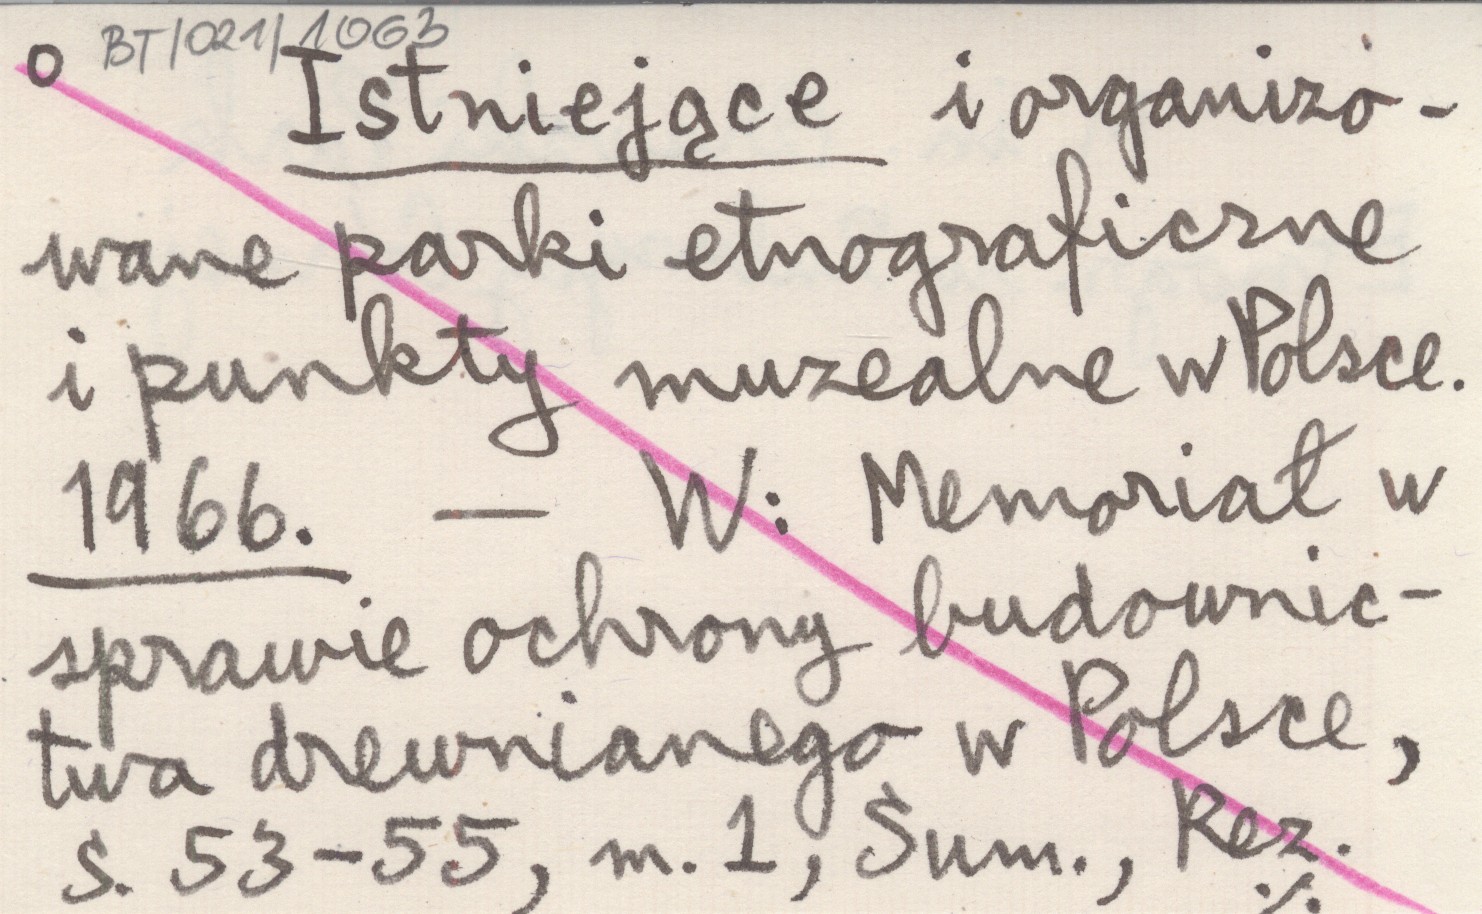 o BT/021/1063
Istniejące i organizo-
wane parki etnograficzne
i punkty muzealne w Polsce.
1966. — W: Memoriał w
sprawie ochrony budownic-
twa drewnianego w Polsce,
s. 53-55, m. 1, Sum., Rez.
./.